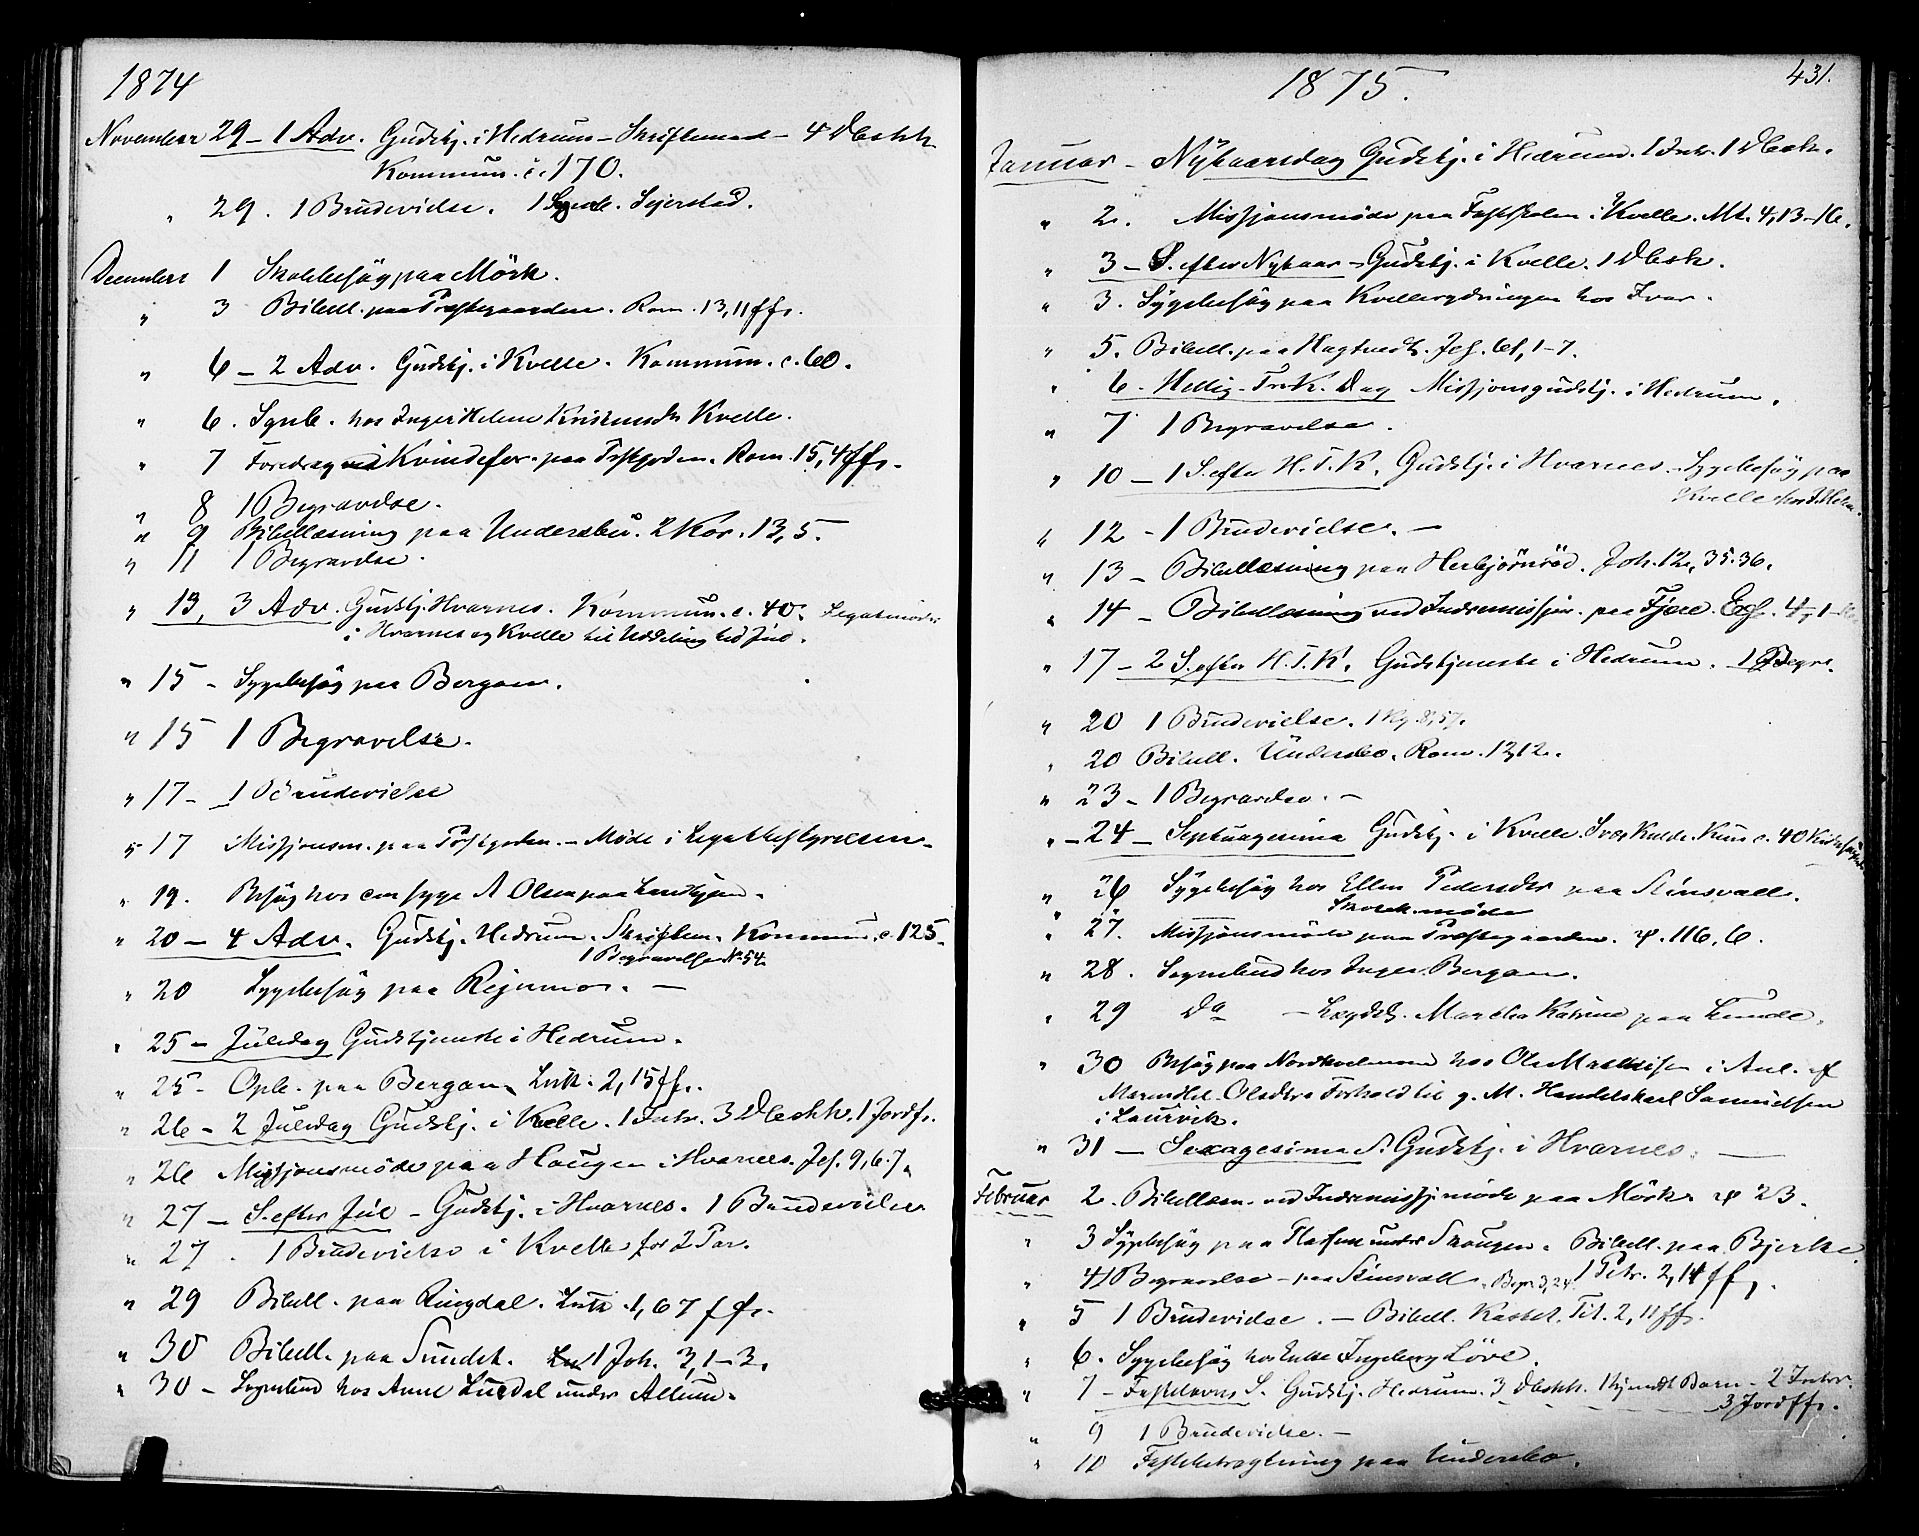 1874
November 29 – 1 Adv. Gudstj. i Hedrum – Skriftemaal – 4 Dbeskh.
Kommun. c. 170.
" 29. 1 Brudevielse. 1 Sognb. Sejerstad.
December 1 Skolebesøg paa Mørk.
" 3 Bibell. paa Præstegaarden. Rom. 13,11 ffs.
" 6 – 2 Adv. Gudstj. i Kvelle. Kommun. c. 60.
" 6. Sgnb. hos Inger Helene Kvelle.
" 7 Foredrag ved Kvindefor. paa Rom. 15,4 ffs.
" 8 1 Begravelse.
" 9 Bibellæsning paa Undersbu. 2 Kor. 13,5.
" 11 1 Begravelse.
" 13, 3 Adv. Gudstj. Hvarnes. Kommun. c. 40. Legatmøde
i Hvarnes og Kvelle til Uddeling ved Jul.
" 15 – Sygebesøg paa Bergan.
" 15 1 Begravelse.
" 17 – 1 Brudevielse
" 17 Missjonsm. paa – Møde i Legatbestyrelsen –
" 19. Besøg hos den syge A Olsen paa
" 20 – 4 Adv. Gudstj. Hedrum. Skriftem. Kommun. c. 125.
1 Begravelse No 54.
" 20 Sygebesøg paa Rejnmo. –
" 25 – Juledag Gudstjeneste i Hedrum.
" 25 – Opb. paa Bergan. Luk. 2,15 ffs.
" 26 – 2 Juledag Gudstj. i Kvelle. 1 Intr. 3 Dbeskh. 1 Jordf.
" 26 Missjonsmøde paa Haugen i Hvarnes. Jes. 9,6.7.
" 27 – S. efter Jul – Gudstj. i Hvarnes. 1 Brudevielse
" 27. 1 Brudevielse i Kvelle for 2 Par.
" 29 Bibell. paa Ringdal. Luk. 1,67 ffs.
" 30 Bibell. paa Sundet. 1 Joh. 3,1–3.
" 30 – Sognebud hos Anne under Allum.
1875.
431.
Januar – Nytaarsdag Gudstj. i Hedrum. 1 Intr. 1 Dbesk.
" 2. Missjonsmøde paa Fastskolen i Kvelle. Mt. 4,13–16.
" 3 – S. efter Nytaar – Gudstj. i Kvelle. 1 Dbesk.
" 3. Sygebesøg paa Kvellerydningen hos Ivar.
" 5. Bibell. paa Hagtvedt. Jes. 61,1–7.
" 6. Hellig-Tre-K. Dag Missjonsgudstj. i Hedrum.
" 7 1 Begravelse.
" 10 – 1 S. efter H.T.K. Gudstj. i Hvarnes – Sygebesøg paa
Kvelle
" 12 – 1 Brudevielse. –
" 13 – Bibellæsning paa Herbjørnrød. Joh. 12,35.36.
" 14 – Bibellæsning ved Indremissjon. paa Fjære. Ef. 4,1–
" 17 – 2 S. efter H.T.K. Gudstjeneste i Hedrum. 1 Begr.
" 20 1 Brudevielse. 1 Kg. 8,57.
" 20 Bibell. Undersbo. Rom. 12,12.
" 23 – 1 Begravelse. –
" – 24 – Septuagesima Gudstj. i Kvelle. Svær Kulde. Kun c. 40
" 26 Sygebesøg hos Ellen Pedersdtr paa Stensvall.
" 27. Missjonsmøde paa Præstegaarden. ψ. 116,6.
" 28. Sognebud hos Inger Bergan.
" 29 Do – Marthe Katrine paa Lunde.
" 30 Besøg paa hos Ole Mathisen i Anl. af
Olsdtrs Forhold til g. M. Handelskarl Samuelsen
i Laurvik.
" 31 – Sexagesima S. Gudstj. i Hvarnes. –
Februar 2. Bibellæsn. ved Indremissj.møde paa Mørk. ψ 23.
" 3 Sygebesøg paa Pladsen under Skougen. Bibell. paa Bjerke
1 Petr. 2,14 ff.
" 4 1 Begravelse – paa Stensvall.
" 5 1 Brudevielse. – Bibell. Kastet. Tit. 2,11 ff.
" 6. Sygebesøg hos Enke Ingeborg Løve.
" 7 – Fastelavns S. Gudstj. Hedrum. 3 Dbeskh. 1 hjemdt Barn – 2 Intr.
3 Jordff.
" 9 1 Brudevielse. –
" 10 Fastebetragtning paa Undersbo.